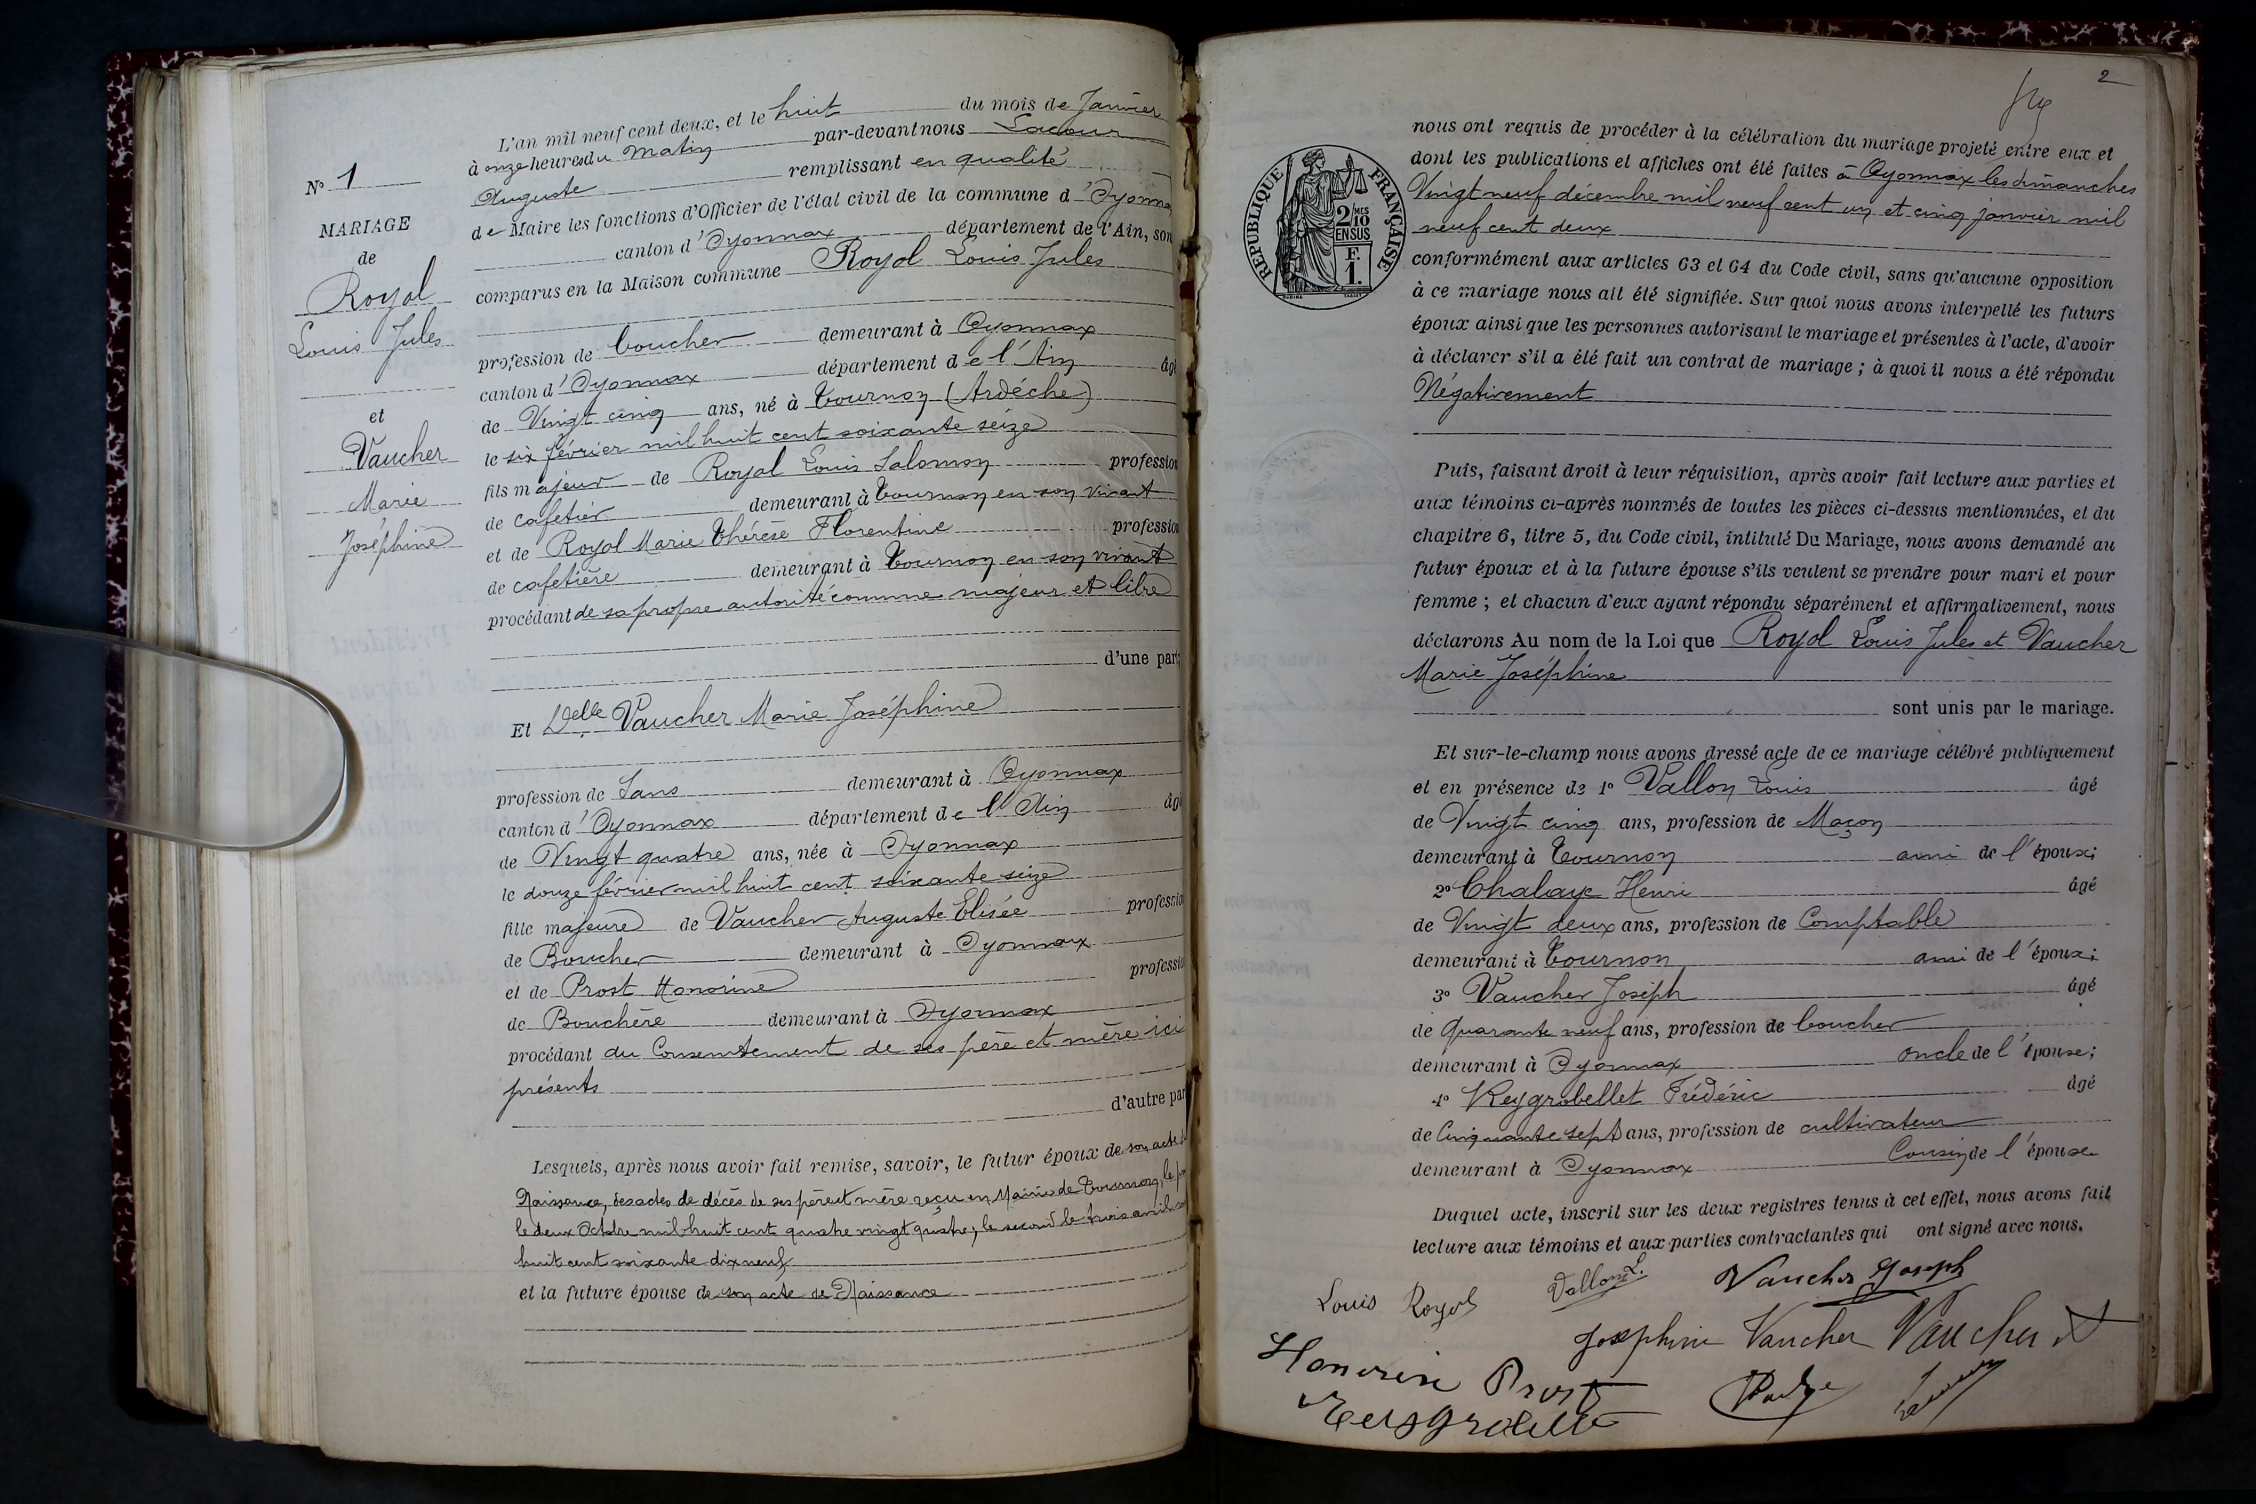 N° 1
MARIAGE
de
Royol
Louis Jules
et
Vaucher
Marie
Joséphine
L'an mil neuf cent deux, et le huit du mois de Janvier
à onze heures du matin par-devant nous Lacour
Auguste remplissant en qualité
de Maire les fonctions d'Officier de l'état civil de la commune d'Oyonna
canton d'Oyonnax département de l'Ain, son
comparus en la Maison commune Royol Louis Jules
profession de boucher demeurant à Oyonnax
canton d'Oyonnax département de l'Ain âgé
de Vingt cinq ans, né à Tournon (Ardéche)
le six février mil huit cent soixante seize
fils majeur de Royol Louis Salomon profession
de cafetier demeurant à Tournon en son vivant
et de Royol Marie Thérèse Florentine profession
de cafetière demeurant à Tournon en son vivant
procédant de sa propre autorité comme majeur et libre
d'une part;
Et Delle Vaucher Marie Joséphine
profession de Sans demeurant à Oyonnax
canton d'Oyonnax département de l'Ain âgé
de Vingt quatre ans, née à Oyonnax
le douze février mil huit cent soixante seize
fille majeure de Vaucher Auguste Elisée profession
de Boucher demeurant à Oyonnax
et de Prost Honorine profession
de Bouchère demeurant à Oyonnax
procédant du Consentement de ses père et mère ici
présents
d'autre par
Lesquels, après nous avoir fait remise, savoir, le futur époux de son acte de
Naissance, des actes de décès de ses père et mère reçu en Mairie de Tournon, le
le deux Octobre mil huit cent quatre vingt quatre, le second le trois avril mil
huit cent soixante dix neuf
et la future épouse de son acte de Naissance
2
RÉPUBLIQUE FRANÇAISE
2/10 MES
EN SUS
F.
1.
nous ont requis de procéder à la célébration du mariage projeté entre eux et
dont les publications et affiches ont été faites à Oyonnax les dimanches
Vingt neuf décembre mil neuf cent un et cinq janvier mil
neuf cent deux
conformément aux articles 63 et 64 du Code civil, sans qu'aucune opposition
à ce mariage nous ait été signifiée. Sur quoi nous avons interpellé les futurs
époux ainsi que les personnes autorisant le mariage et présentes à l'acte, d'avoir
à déclarer s'il a été fait un contrat de mariage ; à quoi il nous a été répondu
Négativement
Puis, faisant droit à leur réquisition, après avoir fait lecture aux parties et
aux témoins ci-après nommés de toutes les pièces ci-dessus mentionnées, et du
chapitre 6, titre 5, du Code civil, intitulé Du Mariage, nous avons demandé au
futur époux et à la future épouse s'ils veulent se prendre pour mari et pour
femme ; et chacun d'eux ayant répondu séparément et affirmativement, nous
déclarons Au nom de la Loi que Royol Louis Jules et Vaucher
Marie Joséphine
sont unis par le mariage.
Et sur-le-champ nous avons dressé acte de ce mariage célébré publiquement
et en présence de 1° Vallon Louis âgé
de Vingt cinq ans, profession de Maçon
demeurant à Tournon ami de l'époux;
2° Chalaye Henri âgé
de Vingt deux ans, profession de Comptable
demeurant à Tournon ami de l'époux;
3° Vaucher Joseph âgé
de quarante neuf ans, profession de boucher
demeurant à Oyonnax oncle de l'épouse;
4° Reygrobellet Frédéric âgé
de Cinquante sept ans, profession de cultivateur
demeurant à Oyonnax Cousin de l'épouse
Duquel acte, inscrit sur les deux registres tenus à cet effet, nous avons fait
lecture aux témoins et aux parties contractantes qui ont signé avec nous.
Louis Royol Vallon L. Vaucher Joseph
Joséphine Vaucher Vaucher A
Honorine Prost
Reygrobellet